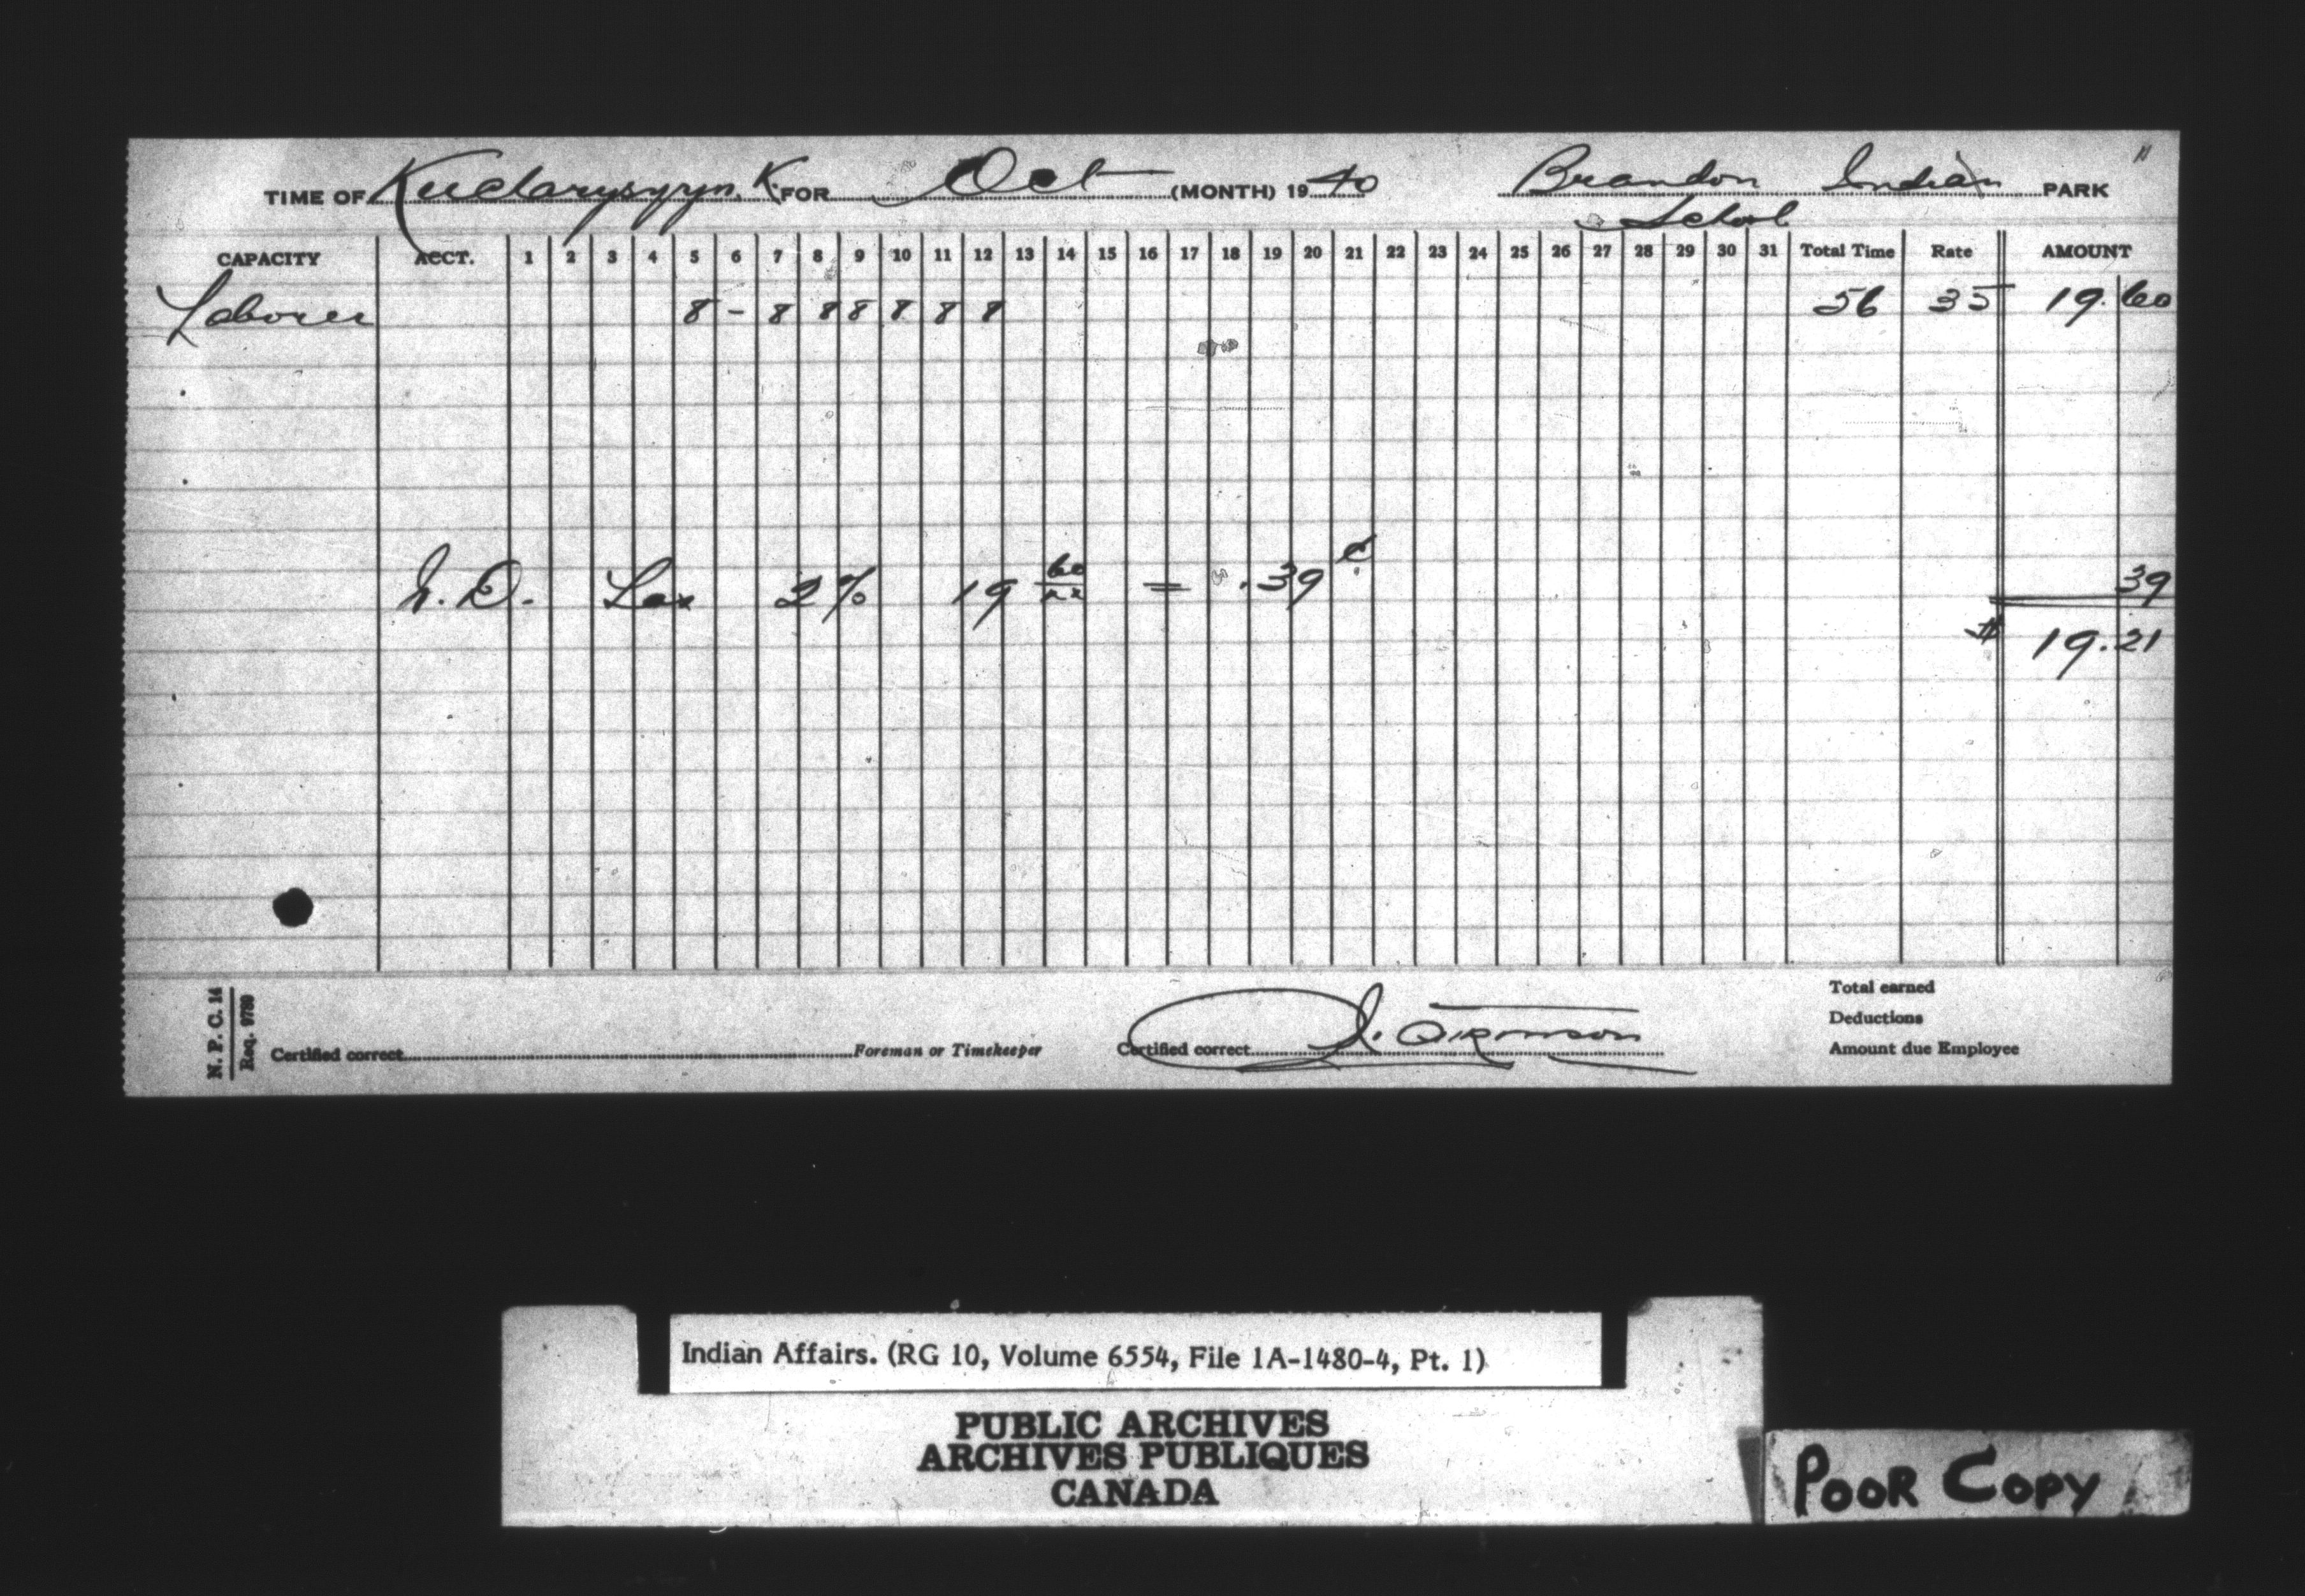 TIME OF Kucharyszyn, K. FOR Oct (MONTH) 1940 Brandon Indian PARK
School
CAPACITY ACCT. 1 2 3 4 5 6 7 8 9 10 11 12 13 14 15 16 17 18 19 20 21 22 23 24 25 26 27 28 29 30 31 Total Time Rate AMOUNT
Laborer 8 - 8 8 8 8 8 8 56 35 19.60
N.D. Tax 2% 19 60/xx = .39¢ 39
$ 19.21
Total earned
Deductions
Certified correct Foreman or Timekeeper Certified correct Amount due Employee
N. P. C. 14
Req. 9780
Indian Affairs. (RG 10, Volume 6554, File 1A-1480-4, Pt. 1)
PUBLIC ARCHIVES
ARCHIVES PUBLIQUES
CANADA
POOR COPY